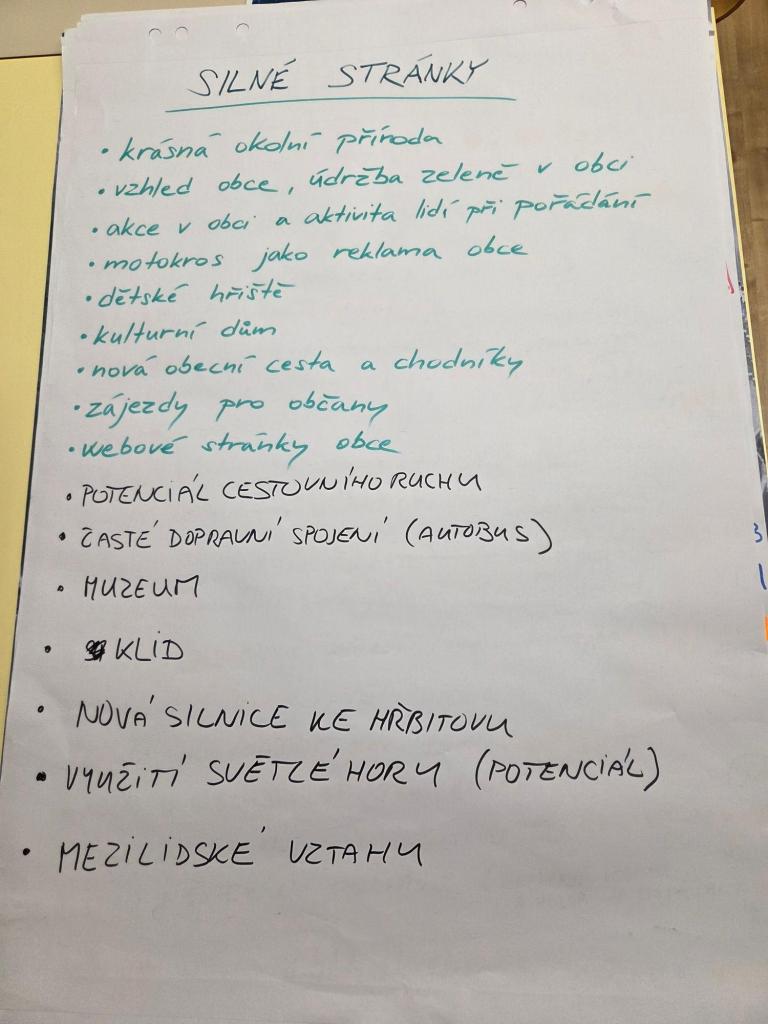 SILNÉ STRÁNKY
• krásná okolní příroda
• vzhled obce, údržba zeleně v obci
• akce v obci a aktivita lidí při pořádání
• motokros jako reklama obce
• dětské hřiště
• kulturní dům
• nová obecní cesta a chodníky
• zájezdy pro občany
• webové stránky obce
• POTENCIÁL CESTOVNÍHO RUCHU
• ČASTÉ DOPRAVNÍ SPOJENÍ (AUTOBUS)
• MUZEUM
• KLID
• NOVÁ SILNICE KE HŘBITOVU
• VYUŽITÍ SVĚTLÉ HORY (POTENCIÁL)
• MEZILIDSKÉ VZTAHY